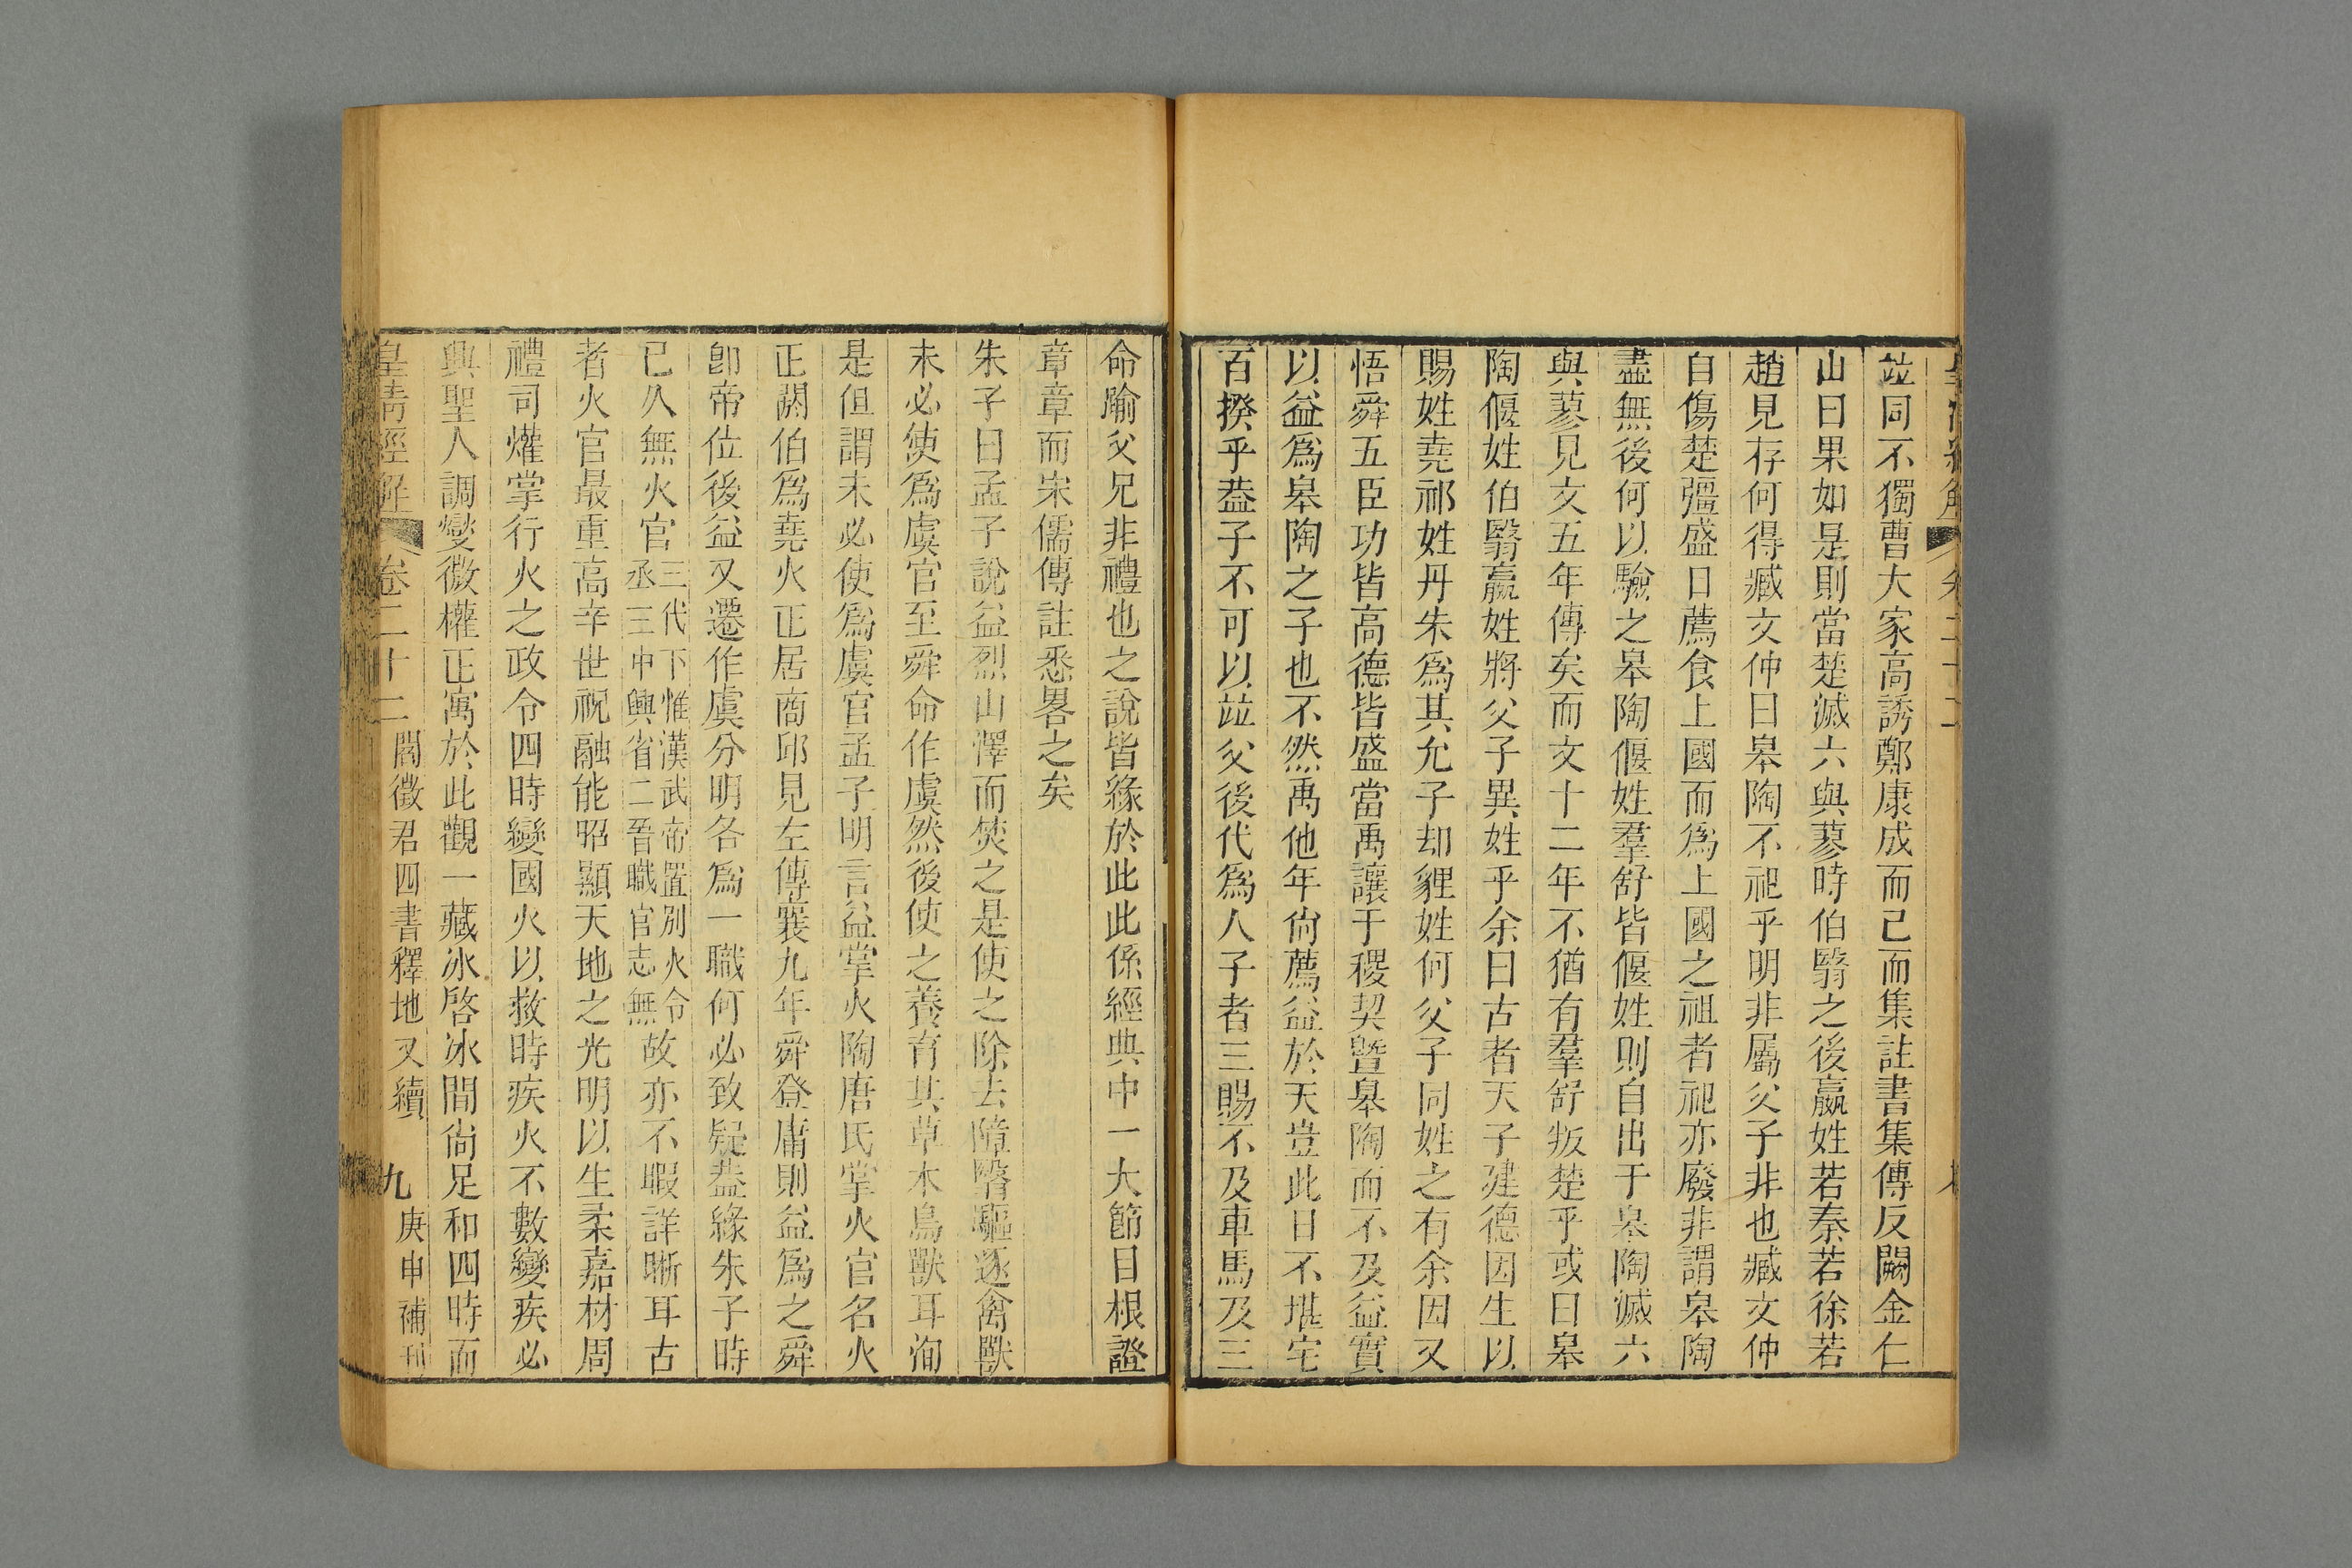 竝同不獨曹大家高誘鄭康成而已而集註書集傳反闕金仁
山曰果如是則當楚滅六與蓼時伯翳之後嬴姓若秦若徐若
趙見存何得臧文仲曰皋陶不祀乎明非屬父子非也臧文仲
自傷楚彊盛日薦食上國而爲上國之祖者祀亦廢非謂皋陶
盡無後何以驗之皋陶偃姓羣舒皆偃姓則自出于皋陶滅六
與蓼見文五年傳矣而文十二年不猶有羣舒叛楚乎或曰皋
陶偃姓伯翳嬴姓將父子異姓乎余曰古者天子建德因生以
賜姓堯祁姓丹朱爲其允子却貍姓何父子同姓之有余因又
悟舜五臣功皆高德皆盛當禹讓于稷契暨皋陶而不及益實
以益爲皋陶之子也不然禹他年尙薦益於天豈此日不堪宅
百揆乎葢子不可以竝父後代爲人子者三賜不及車馬及三
命踰父兄非禮也之說皆緣於此此係經典中一大節目根證
章章而宋儒傳註悉畧之矣
朱子曰孟子說益烈山澤而焚之是使之除去障翳驅逐禽獸
未必使爲虞官至舜命作虞然後使之養育其草木鳥獸耳洵
是但謂未必使爲虞官孟子明言益掌火陶唐氏掌火官名火
正閼伯爲堯火正居商邱見左傳襄九年舜登庸則益爲之舜
卽帝位後益又遷作虞分明各爲一職何必致疑葢緣朱子時
已久無火官三代下惟漢武帝置別火令丞三中興省二晉職官志無故亦不暇詳晰耳古
者火官最重高辛世祝融能昭顯天地之光明以生柔嘉材周
禮司爟掌行火之政令四時變國火以救時疾火不數變疾必
興聖人調燮微權正寓於此觀一藏冰啓冰間尙足和四時而
皇清經解 卷二十二 閻徵君四書釋地又續 九 庚申補刊